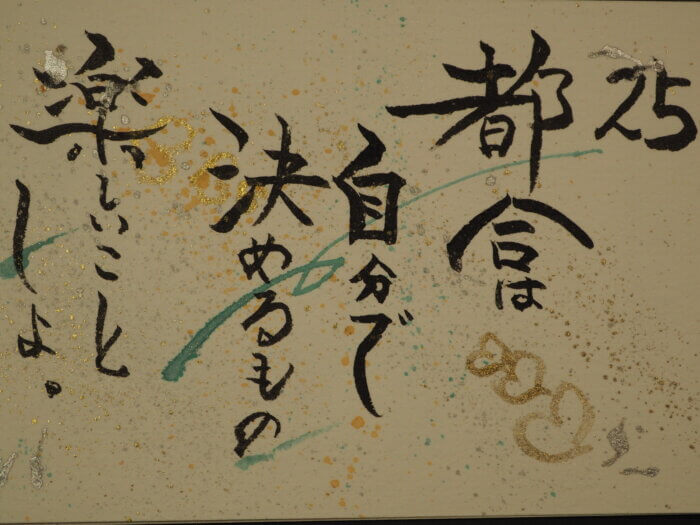 25
都合は
自分で
決めるもの
楽しいこと
しよ。